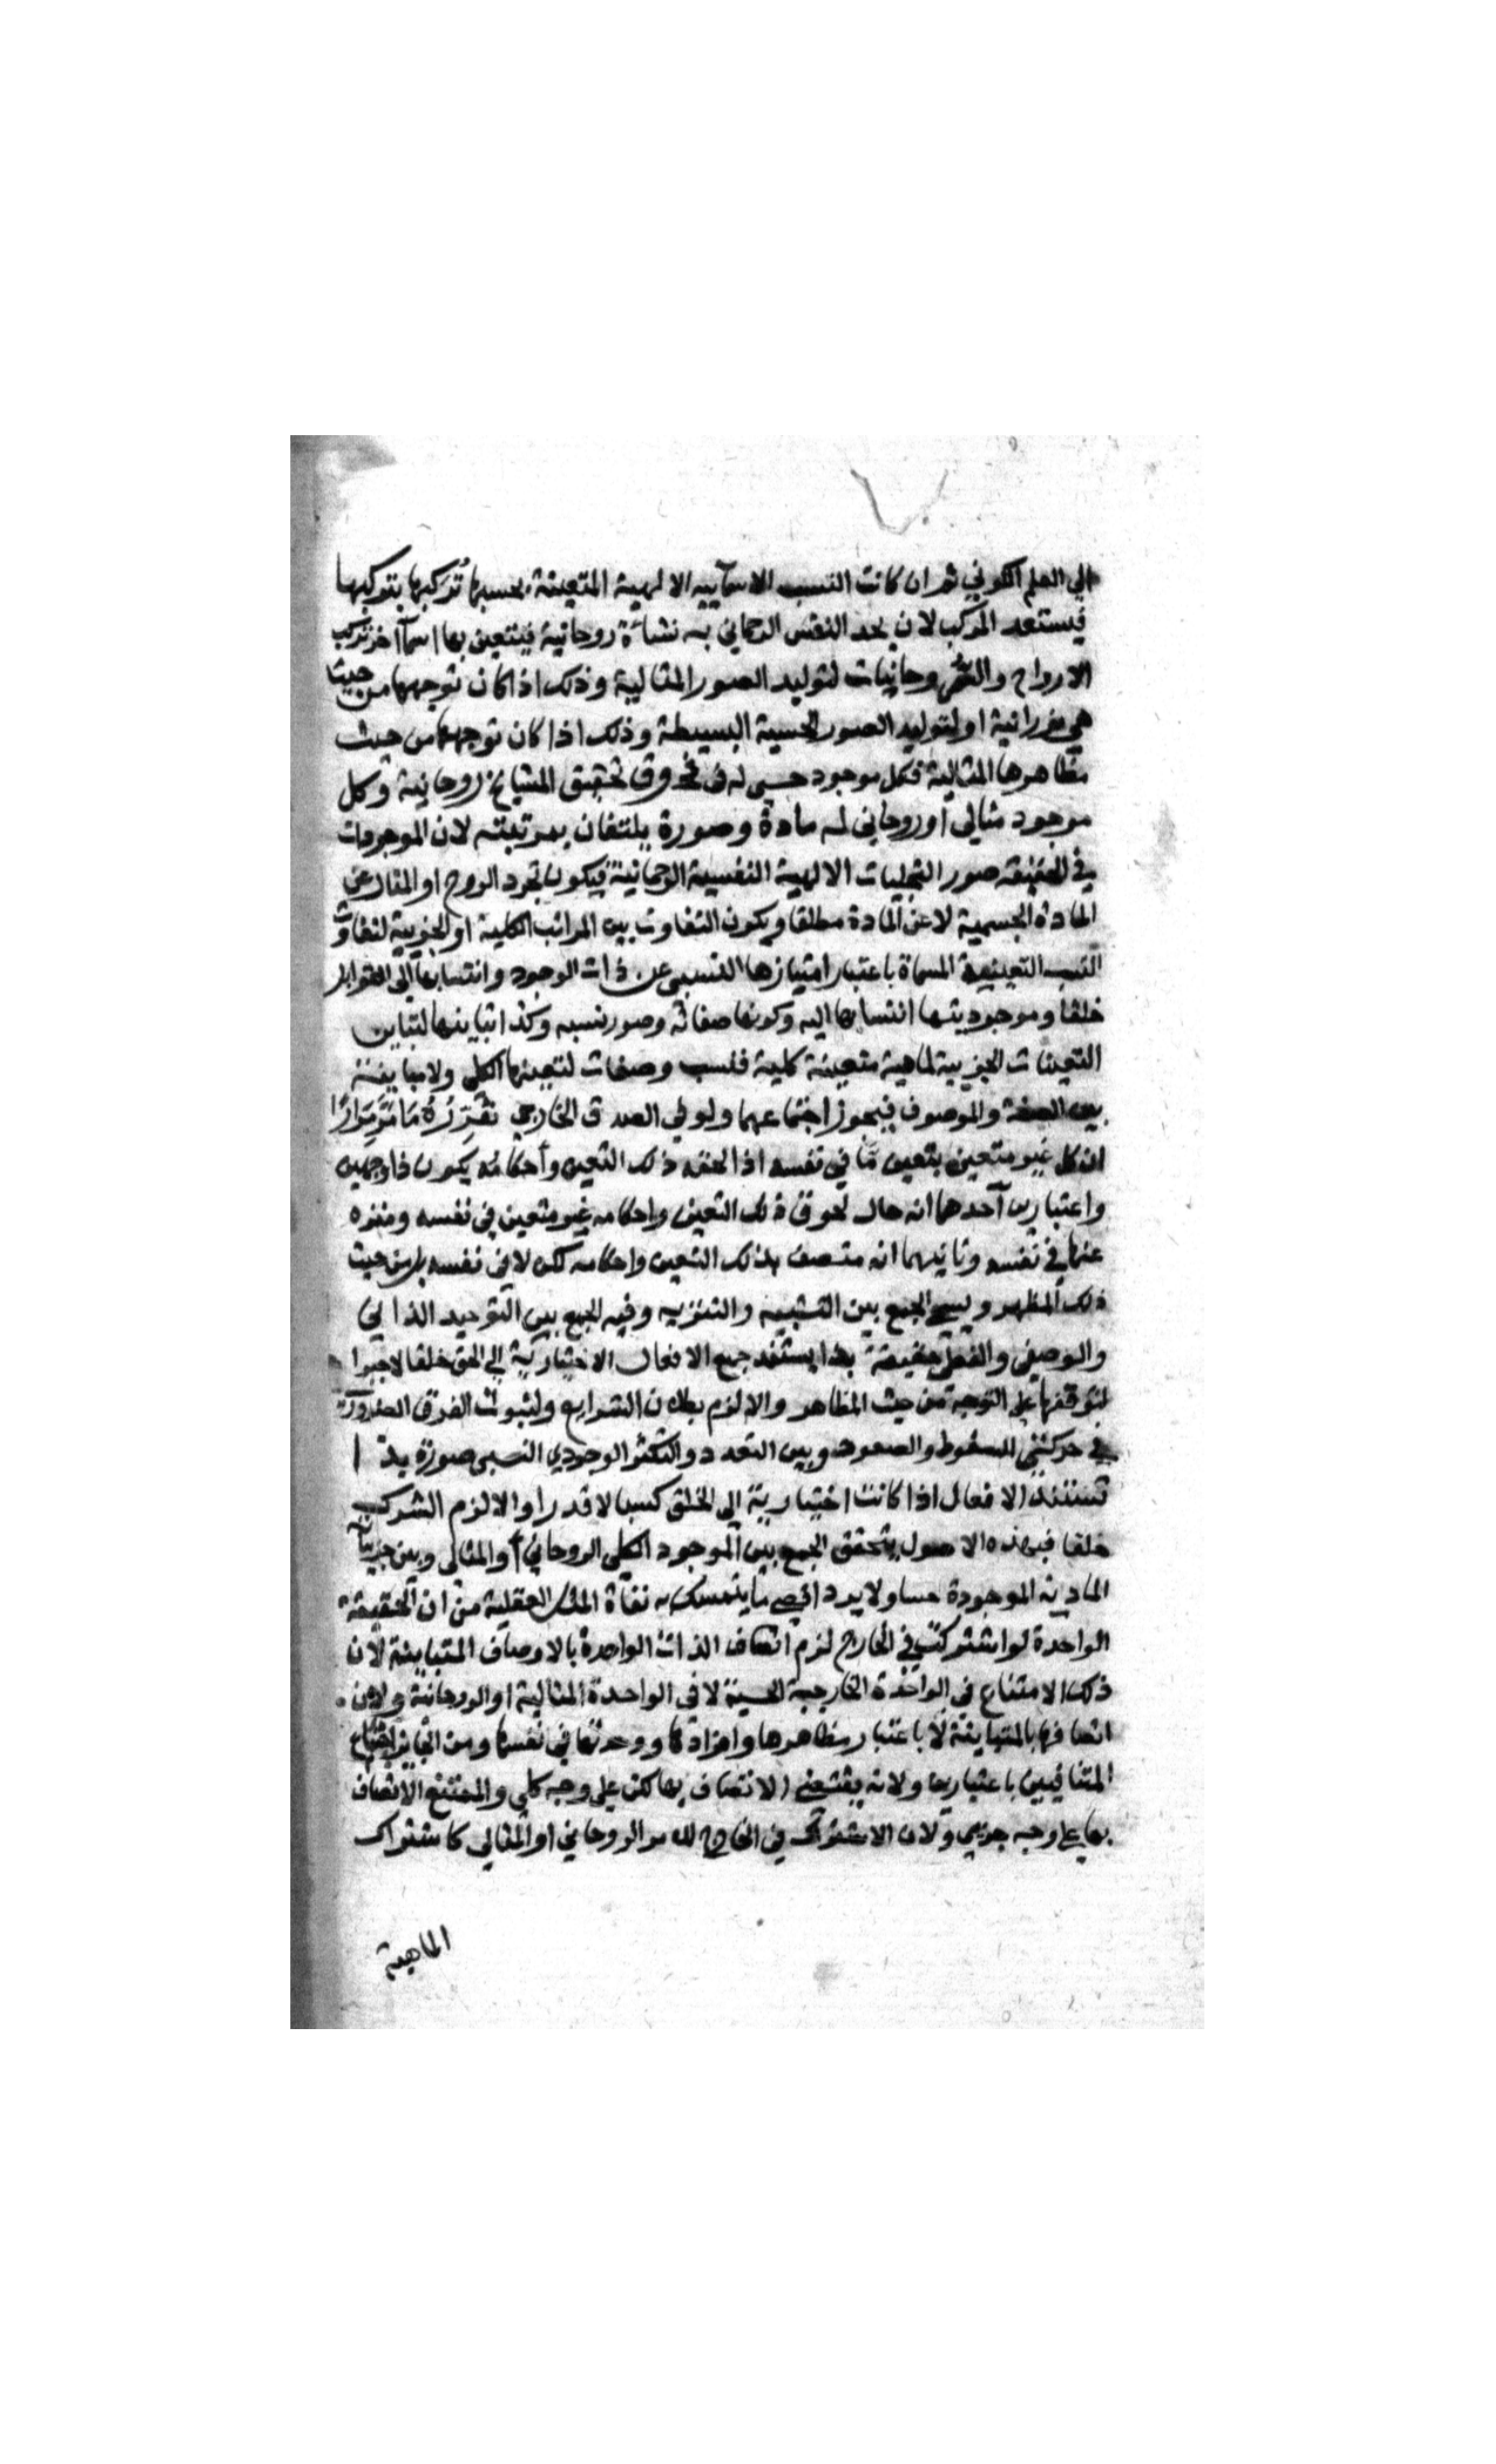 الي العلم الكوني ثم ان كانت النسب الاسمآييه الالهية المتعينة بحسبها تركبها بتركبها
فيستعد المركب لان يحد النفس الرحماني به نشأة روحانية فيتعين بها اسمآ اخر تركب
الارواح والروحانيات لتوليد الصور المثالية وذلك اذا كان توجهها من حيث
هي نورانية او لتوليد الصور الحسية البسيطة وذلك اذا كان توجهها من حيث
مظاهرها المثالية فكل موجود حسي له في ذوق تحقيق المشايخ روحانية وكل
موجود مثالي او روحاني له مادة وصورة يلتقان بمرتبته لان الموجودات
في الحقيقة صور التجليات الالهية النفسية الرحمانية فيكون تجرد الروح او المثال عن
المادة الجسمية لا عن المادة مطلقا ويكون التفاوت بين المراتب الكلية او الجزيية لتفاوت
النسب التعينية المسماة باعتبار امتيازها النسبي عن ذات الوجود وانتسابها الى القوابل
خلقا وموجوديتها انتسابها اليه وكونها صفاته وصور نسبه وكذا تباينها لتباين
التعينات الجزيية لماهية متعينة كلية فنسب وصفات لتعينها الكلي ولا مباينة
بين الصفة والموصوف فيجوز اجتماعهما ولو في الصدق الخارجي تقرره ما مر مرارا
ان كل غير متعين بتعين ما في نفسه اذا لحقه ذلك التعين وأحكامه يكون ذا وجهين
واعتبارين آحدهما انه حال لحوق ذلك التعين واحكامه غير متعين في نفسه ومنزه
عنها في نفسه وثانيهما انه متصف بذلك التعين واحكامه لكن لا في نفسه بل من حيث
ذلك المظهر ويسمى الجمع بين التشبيه والتنزيه وفيه الجمع بين التوحيد الذاتي
والوصفي والفعلي حقيقة بهذا يستند جميع الافعال الاختيارية الي الحق خلقا لا جبرا
لتوقفها على التوجه من حيث المظاهر والا لزم بطلان الشرايع ولثبوت الفرق الضروري
في حركتي السقوط والصعود وبين التعدد والتكثر الوجودي النسبي صورة بذا
تستند الافعال اذا كانت اختيارية الى الخلق كسبا لا قدرا والا لزم الشرك
خلقا فبهذه الاصول يتحقق الجمع بين الموجود الكلي الروحاني أو المثالي وبين جزييا
المادية الموجودة حسا ولا يرد اقصى ما يتمسك به نفاة المثل العقلية من ان الحقيقة
الواحدة لو اشتركت في الخارج لزم اتصاف الذات الواحدة بالاوصاف المتباينة لان
ذلك الامتناع في الواحدة الخارجية الحسية لا في الواحدة المثالية او الروحانية ولان
اتصافها بالمتباينة لا باعتبار مظاهرها وافرادها ووحدتها في نفسها ومن الجايز اجتماع
المتنافيين باعتبارها ولانه يقتضي الاتصاف بها لكن على وجه كلي والممتنع الاتصاف
بها على وجه جزيي ولان الاشتراك في الخارج للامر الروحاني او المثالي كاشتراك
الماهية